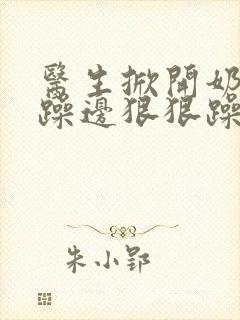 醫生掀開奶
躁邊狠狠躁
朱小郢